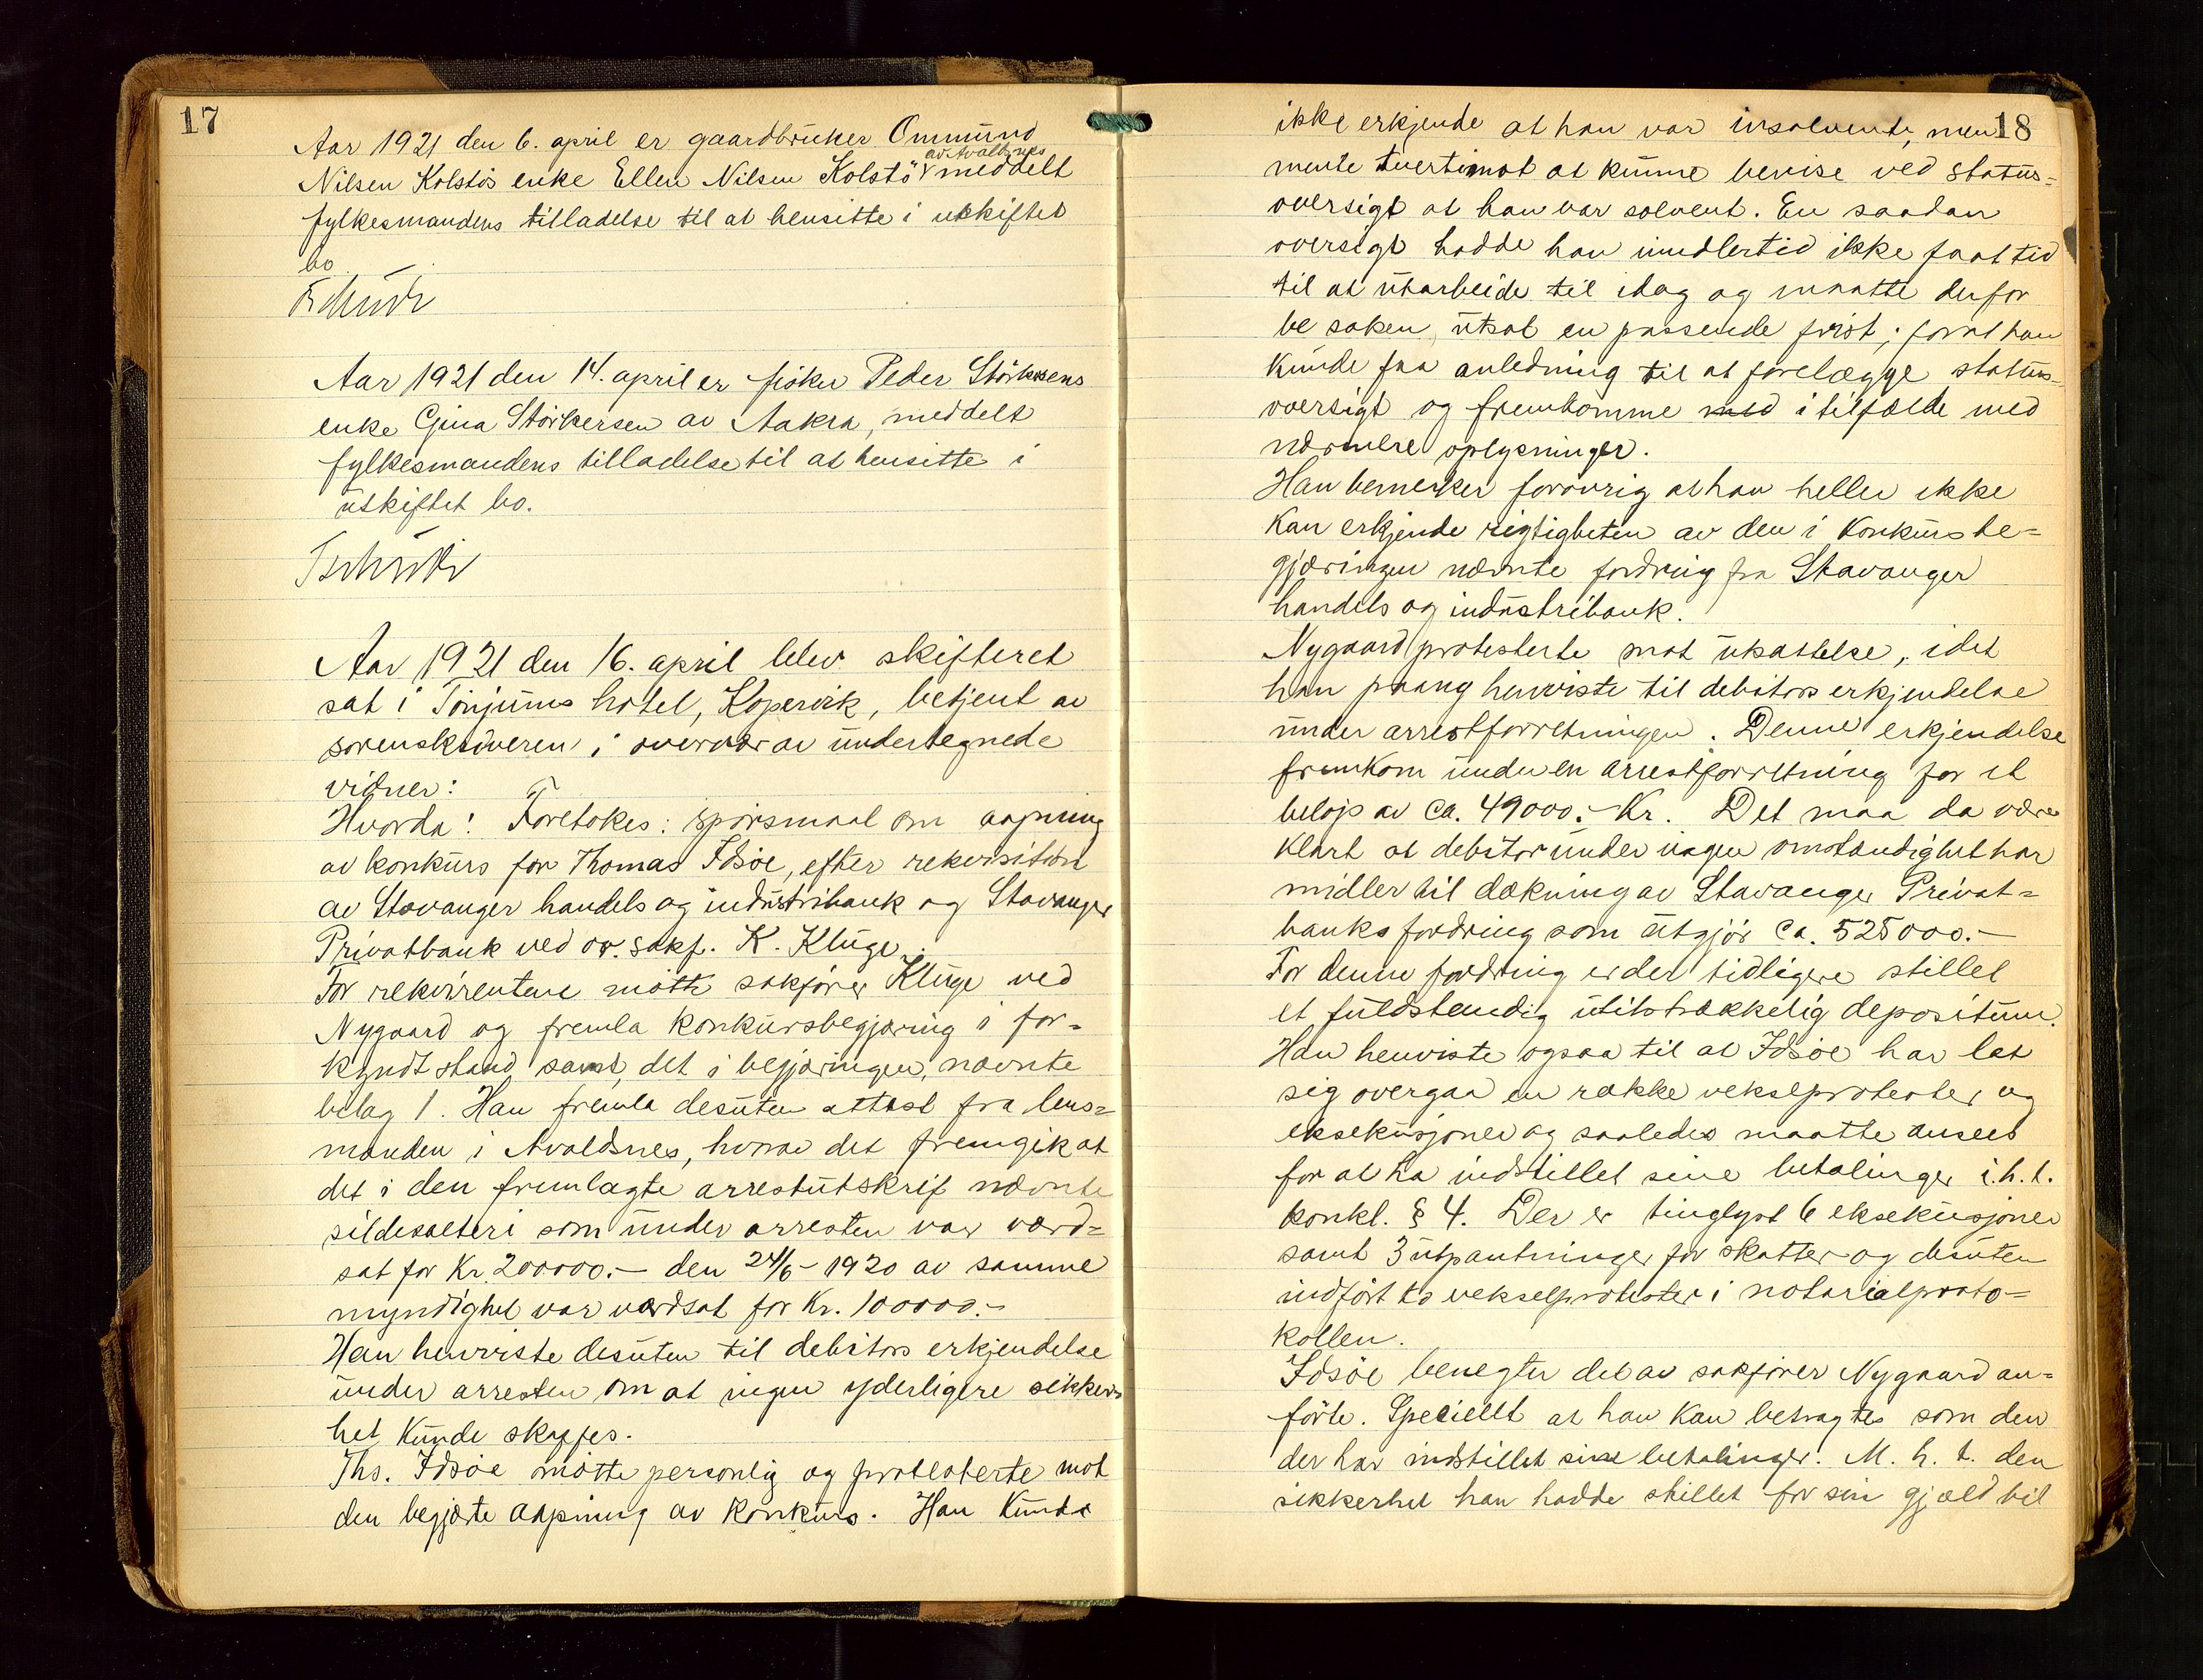 17
Aar 1921 den 6. april er gaardbruker Ommund
av Avaldsnes
Nilsen Kolstøs enke Ellen Nilsen Kolstö meddelt
fylkesmandens tilladelse til at hensitte i utskiftet
bo
Aar 1921 den 14. april er fisker Peder Störkersens
enke Gina Störkersen av Aakra, meddelt
fylkesmandens tilladelse til at hensitte i
utskiftet bo.
Aar 1921 den 16. april blev skifteret
sat i Tönjums hotel, Kopervik, betjent av
sorenskriveren i overvær av undertegnede
vidner:
Hvorda: Foretokes: spörsmaal om aapning
av konkurs for Thomas Idsöe, efter rekvisition
av Stavanger handels og industribank og Stavanger
Privatbank ved or. sakf. K. Kluge.
For rekvirentene mötte sakförer Kluge ved
Nygaard og fremla konkursbegjæring i for-
kyndt stand samt, det i begjæringen, nævnte
bilag 1. Han fremla desuten attest fra lens-
manden i Avaldsnes, hvorav det fremgik at
det i den fremlagte arrestutskrift nævnte
sildesalteri som under arresten var værd-
sat for Kr. 200000.- den 24/6-1920 av samme
myndighet var værdsat for Kr. 100000.-
Han henviste desuten til debitors erkjendelse
under arresten om at ingen yderligere sikker-
het kunde skaffes.
Ths. Idsöe mötte personlig og protesterte mot
den begjærte aapning av konkurs. Han kunde
18
ikke erkjende at han var insolvent, men
mente tvertimot at kunne bevise ved status-
oversigt at han var solvent. En saadan
oversigt hadde han imidlertid ikke faat tid
til at utarbeide til idag og maatte derfor
be saken utsat en passende frist, forat han
kunde faa anledning til at forelægge status-
oversigt og fremkomme med i tilfælde med
nærmere oplysninger.
Han bemerker forövrig at han heller ikke
kan erkjende rigtigheten av den i konkursbe-
gjæringen nævnte fordring fra Stavanger
handels og industribank.
Nygaard protesterte mot utsættelse, idet
han paany henviste til debitors erkjendelse
under arrestforretningen. Denne erkjendelse
fremkom under en arrestforretning for et
belöp av ca. 49000.- Kr. Det maa da være
klart at debitor under ingen omstændighet har
midler til dækning av Stavanger Privat-
banks fordring som utgjör ca. 525000.-
For denne fordring er der tidligere stillet
et fuldstændig utilstrækkelig depositum.
Han henviste ogsaa til at Idsöe har lat
sig overgaa en række vekselprotester og
eksekusjoner og saaledes maatte ansees
for at ha indstillet sine betalinger i.h.t.
konkl. § 4. Der er tinglyst 6 eksekusjoner
samt 3 utpantninger for skatter og desuten
indfört to vekselprotester i notarialproto-
kollen.
Idsöe benegter det av sakförer Nygaard an-
förte. Specielt at han kan betragtes som den
der har indstillet sine betalinger. M. h. t. den
sikkerhet han hadde stillet for sin gjæld til